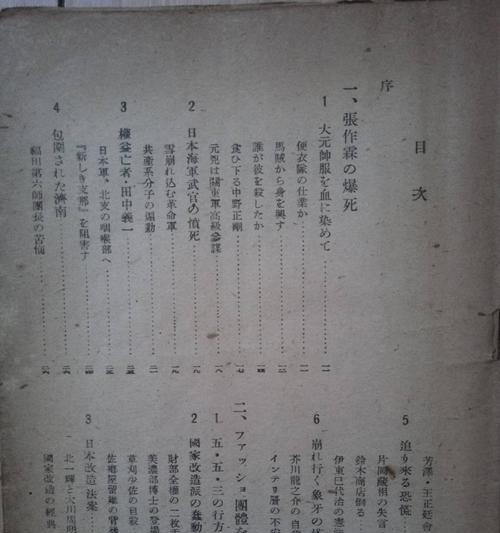 目次
序
一、張作霖の爆死
1 大元帥服を血に染めて
便衣隊の仕業か
馬賊から身を興す
誰が彼を殺したか
食ひ下る中野正剛
元兇は關東軍高級參謀
2 日本海軍武官の憤死
雪崩れ込む革命軍
共産系分子の煽動
3 權益亡者、田中義一
日本軍、北支の咽喉部へ
『新しき支那』を阻害す
4 包圍された濟南
福田第六師團長の苦惱
芳澤・王正廷會
5 迫り來る恐慌
片岡藏相の失言
鈴木商店倒る
伊東巳代治の憲法
6 崩れ行く象牙の塔
芥川龍之介の自
インテリ層の不安
二、ファッショ團體を
1 五・五・三の行方
2 國家改造派の蠢動
財部全權の二枚舌
美濃部博士の登場
草刈少佐の自殺
佐鄕屋留雄の背後
3 日本改造法案
北一輝と大川周明
國家改造の經典